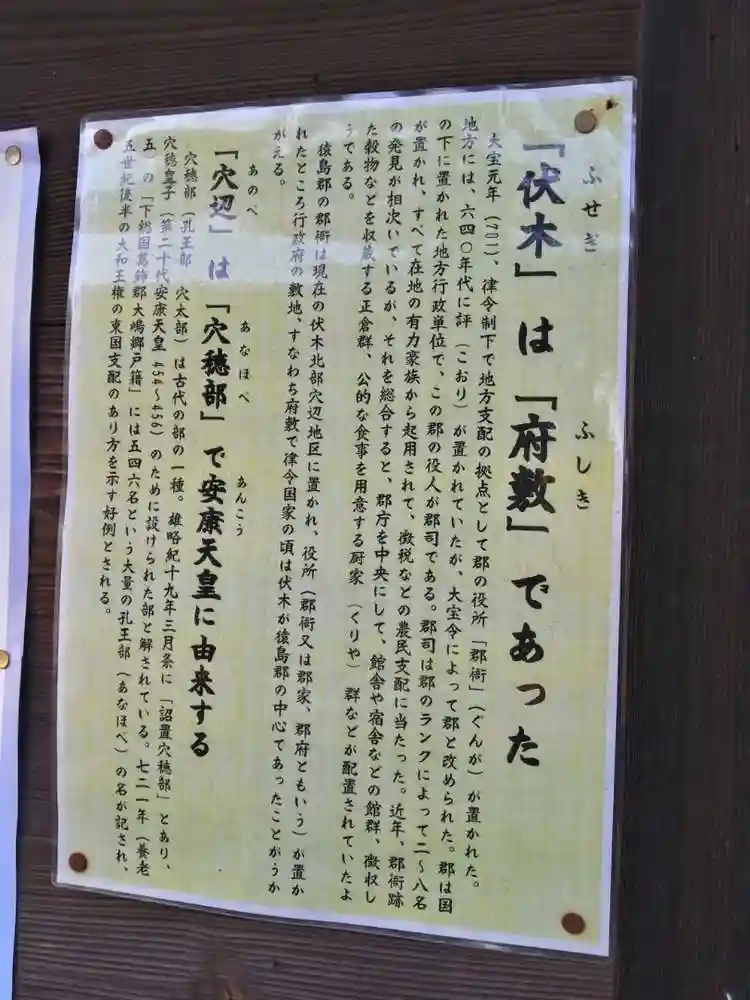 ふせぎ ふしき
「伏木」は「府敷」であった
大宝元年（701）、律令制下で地方支配の拠点として郡の役所「郡衙」（ぐんが）が置かれた。
地方には、六四〇年代に評（こおり）が置かれていたが、大宝令によって郡と改められた。郡は国
の下に置かれた地方行政単位で、この郡の役人が郡司である。郡司は郡のランクによって二～八名
が置かれ、すべて在地の有力豪族から起用されて、徴税などの農民支配に当たった。近年、郡衙跡
の発見が相次いでいるが、それを総合すると、郡庁を中央にして、館舎や宿舎などの館群、徴収し
た穀物などを収蔵する正倉群、公的な食事を用意する厨家（くりや）群などが配置されていたよ
うである。
猿島郡の郡衙は現在の伏木北部穴辺地区に置かれ、役所（郡衙又は郡家、郡府ともいう）が置か
れたところ行政府の敷地、すなわち府敷で律令国家の頃は伏木が猿島郡の中心であったことがうか
がえる。
あのべ あなほべ あんこう
「穴辺」は「穴穂部」で安康天皇に由来する
穴穂部（孔王部　穴太部）は古代の部の一種。雄略紀十九年三月条に「詔置穴穂部」とあり、
穴穂皇子（第二十代安康天皇 454～456）のために設けられた部と解されている。七二一年（養老
五）の「下総国葛飾郡大嶋郷戸籍」には五四六名という大量の孔王部（あなほべ）の名が記され、
五世紀後半の大和王権の東国支配のあり方を示す好例とされる。